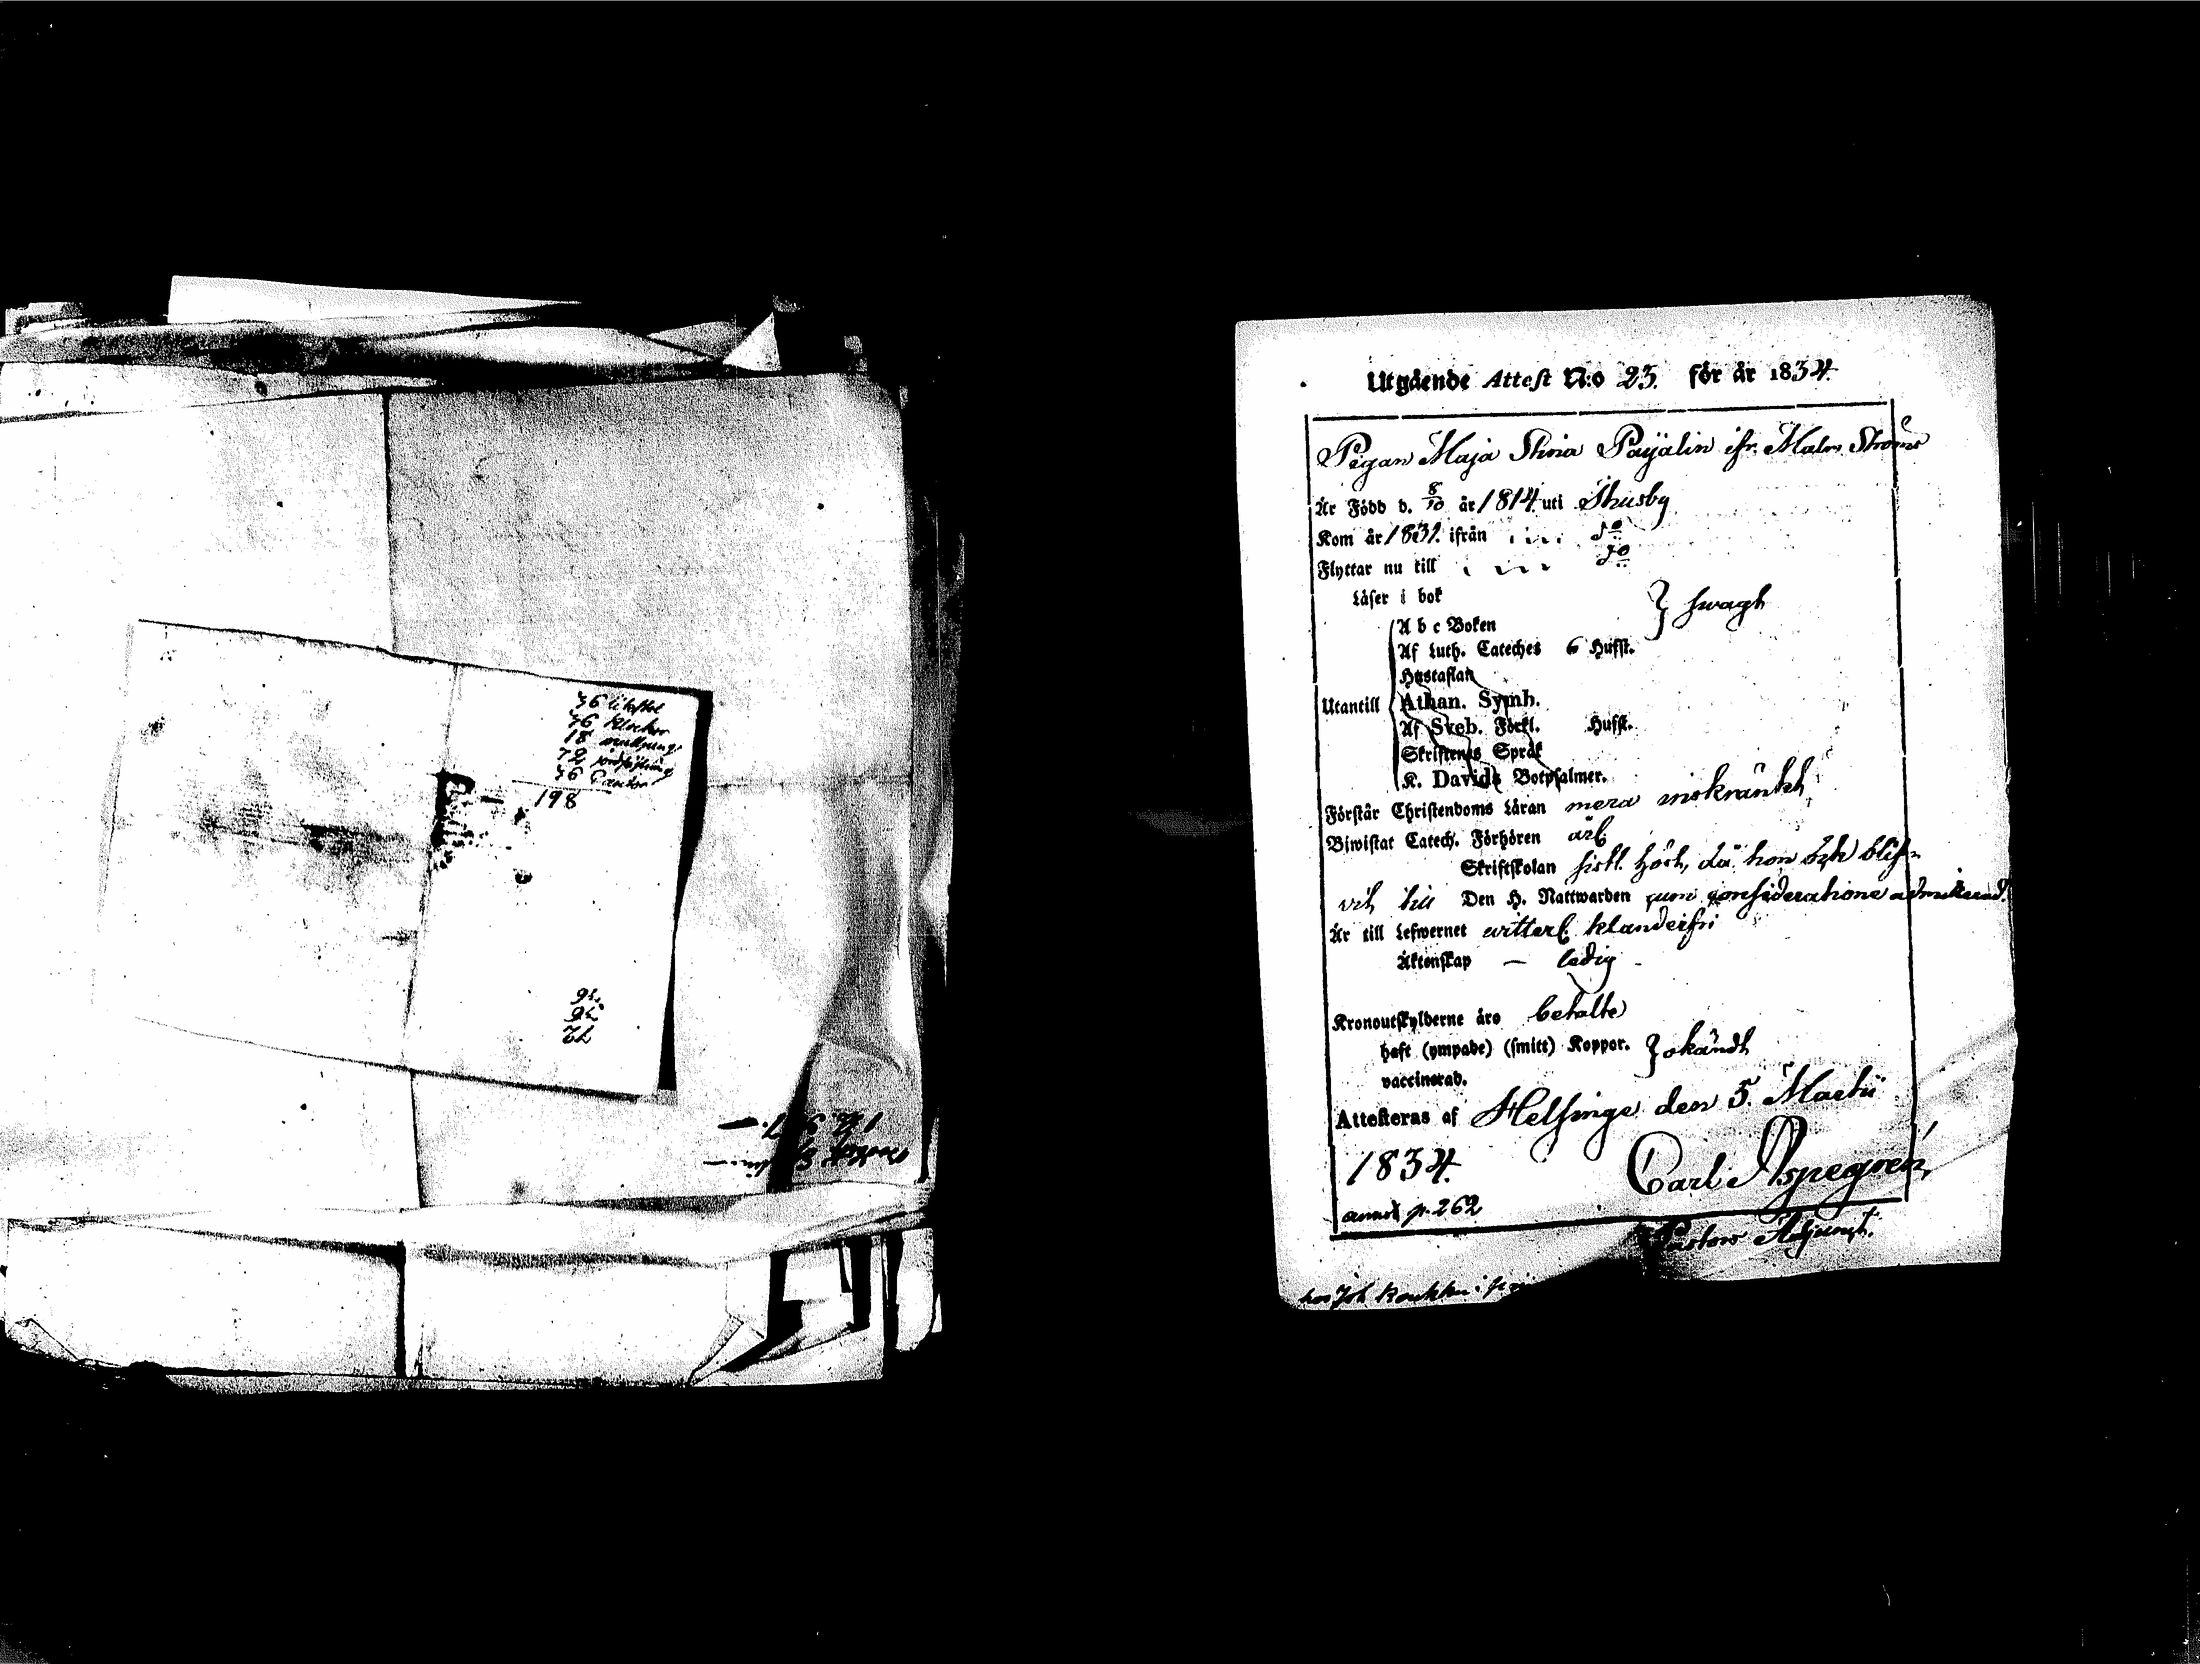 36
36 Klockar
18
72
36 Cantor
198
36
36
72
Utgående Attest N:o 23. för år 1834.
Pigan Maja Stina Payalin ifr. Malm Ströms
Är Född d. 8/10 år 1814 uti Thusby
Kom år 1831. ifrån d:o
Flyttar nu till d:o
Läser i bok
} swagt
A b c Boken
Af Luth. Cateches 6 Hufst.
Hustaflan
Utantill
Athan. Symb.
Af Sveb. Förkl. Hufst.
Skriftenes Språk
K. Davids Botpsalmer.
Förstår Christendoms Läran mera inskränkt
Biwistat Catech. Förhören årl.
Skriftskolan sistl. höst, då hon ock blifv
vit till Den H. Nattwarden cum consideratione admitterad.
Är till Lefwernet witterl. klanderfri
Äktenskap — ledig
Kronoutskylderne äro betalte
haft (ympade) (smitt) Koppor. } okändt
vaccinerad.
Attesteras af Helsinge den 5. Martii
1834.
Carl Aspegren,
annot p. 262
Pastors Adjunct.
hos Joh.